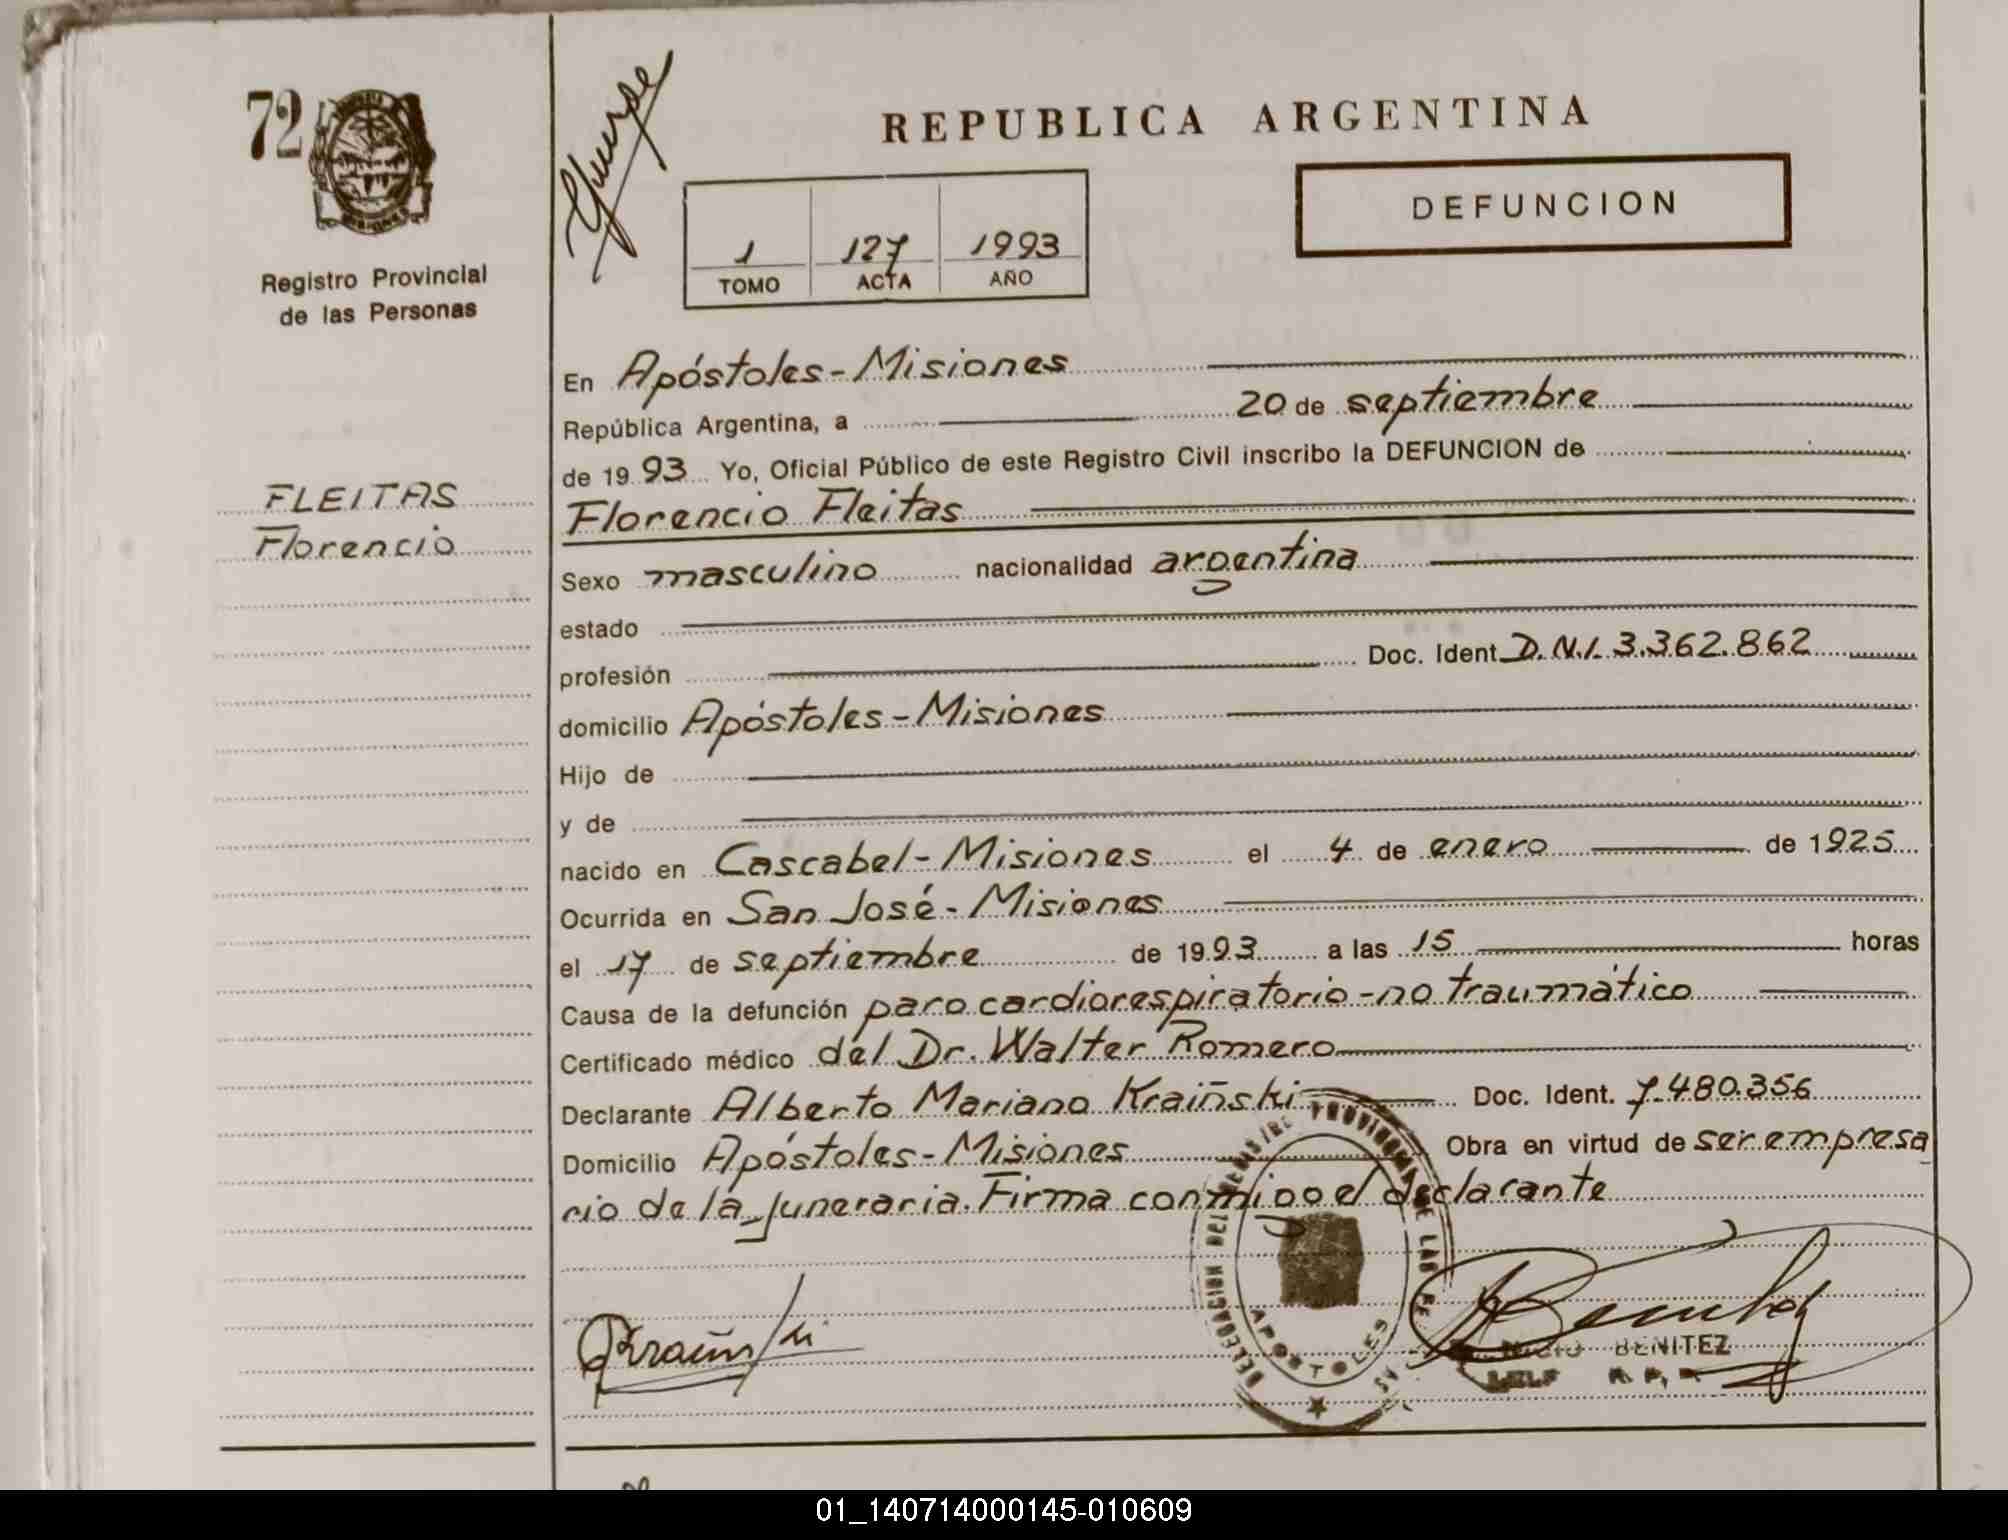 72
Registro Provincial
de las Personas
REPUBLICA ARGENTINA
DEFUNCION
1 127 1993
TOMO ACTA AÑO
FLEITAS
Florencio
En Apóstoles-Misiones
República Argentina, a 20 de septiembre
de 1993 Yo, Oficial Público de este Registro Civil inscribo la DEFUNCION de
Florencio Fleitas
Sexo masculino nacionalidad argentina
estado
profesión Doc. Ident. D.N.I. 3.362.862
domicilio Apóstoles-Misiones
Hijo de
y de
nacido en Cascabel-Misiones el 4 de enero de 1925
Ocurrida en San José-Misiones
el 17 de septiembre de 1993 a las 15 horas
Causa de la defunción paro cardiorespiratorio-no traumático
Certificado médico del Dr. Walter Romero
Declarante Alberto Mariano Kraiñski Doc. Ident. 7.480.356
Domicilio Apóstoles-Misiones Obra en virtud de ser empresa
rio de la funeraria. Firma conmigo el declarante
DELEGACION DEL REGISTRO PROVINCIAL DE LAS PERSONAS
APOSTOLES
BENITEZ
01_140714000145-010609